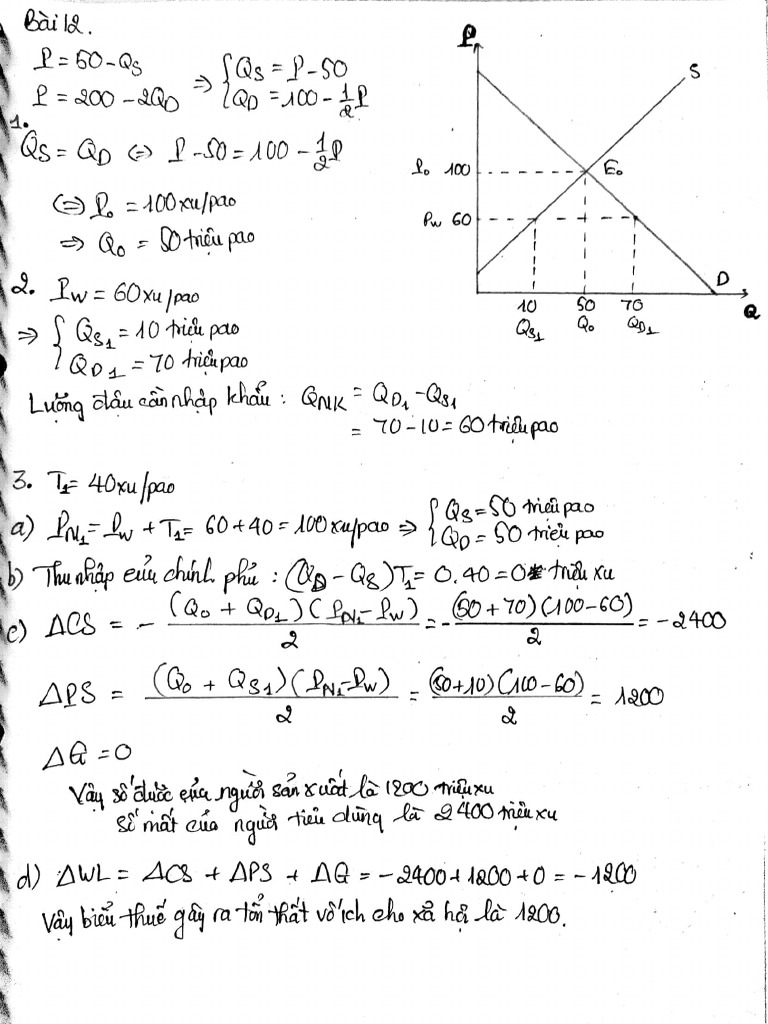 Bài 12.
P = 50 - Q_S
P = 200 - 2Q_D
⇒ { Q_S = P - 50
Q_D = 100 - 1/2 P
1.
Q_S = Q_D ⇔ P - 50 = 100 - 1/2 P
⇔ P₀ = 100 xu/pao
⇒ Q₀ = 50 triệu pao
P
S
P₀ 100
E₀
P_W 60
D
10 50 70
Q_S1 Q₀ Q_D1
Q
2. P_W = 60 xu/pao
⇒ { Q_S1 = 10 triệu pao
Q_D1 = 70 triệu pao
Lượng đậu cần nhập khẩu : Q_NK = Q_D1 - Q_S1
= 70 - 10 = 60 triệu pao
3. T₁ = 40 xu/pao
a) P_N1 = P_W + T₁ = 60 + 40 = 100 xu/pao ⇒ { Q_S = 50 triệu pao
Q_D = 50 triệu pao
b) Thu nhập của chính phủ : (Q_D - Q_S)T₁ = 0.40 = 0 triệu xu
c) ΔCS = - (Q₀ + Q_D1)(P_N1 - P_W) / 2 = - (50 + 70)(100 - 60) / 2 = - 2400
ΔPS = (Q₀ + Q_S1)(P_N1 - P_W) / 2 = (50 + 10)(100 - 60) / 2 = 1200
ΔG = 0
Vậy số được của người sản xuất là 1200 triệu xu
số mất của người tiêu dùng là 2400 triệu xu
d) ΔWL = ΔCS + ΔPS + ΔG = - 2400 + 1200 + 0 = - 1200
Vậy biểu thuế gây ra tổn thất vô ích cho xã hội là 1200.